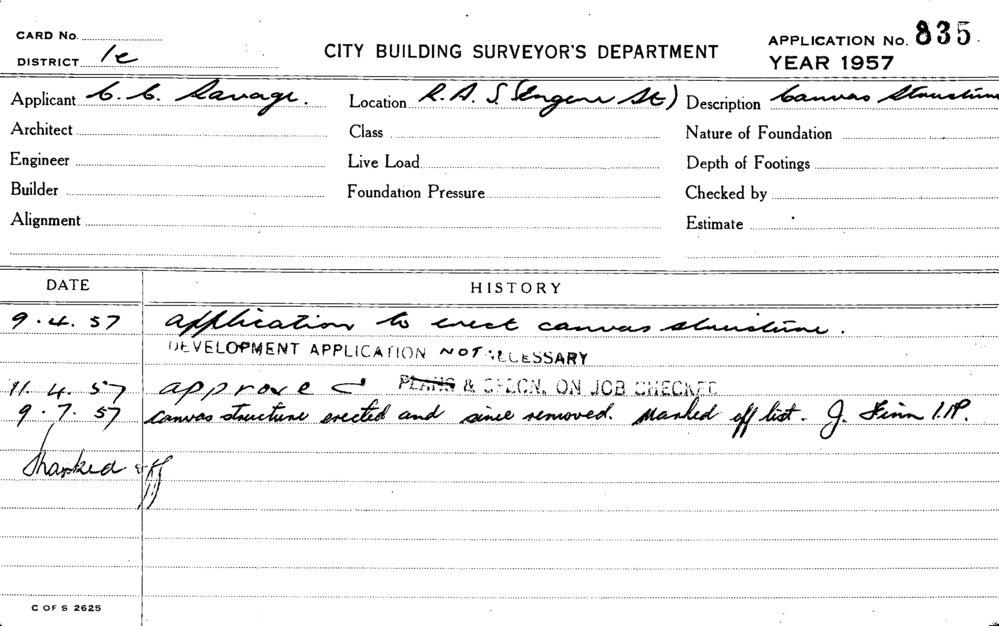 CARD No.
DISTRICT 1c
CITY BUILDING SURVEYOR'S DEPARTMENT
APPLICATION No. 835
YEAR 1957
Applicant C. C. Savage.
Location R. A. S. St)
Description Canvas Structure
Architect
Class
Nature of Foundation
Engineer
Live Load
Depth of Footings
Builder
Foundation Pressure
Checked by
Alignment
Estimate
DATE
HISTORY
9.4.57 application to erect canvas structure.
DEVELOPMENT APPLICATION NOT NECESSARY
11.4.57 approved PLANS & SPECN. ON JOB CHECKED
9.7.57 canvas structure erected and since removed. Marked off list. J. Finn
Marked off
C OF S 2625